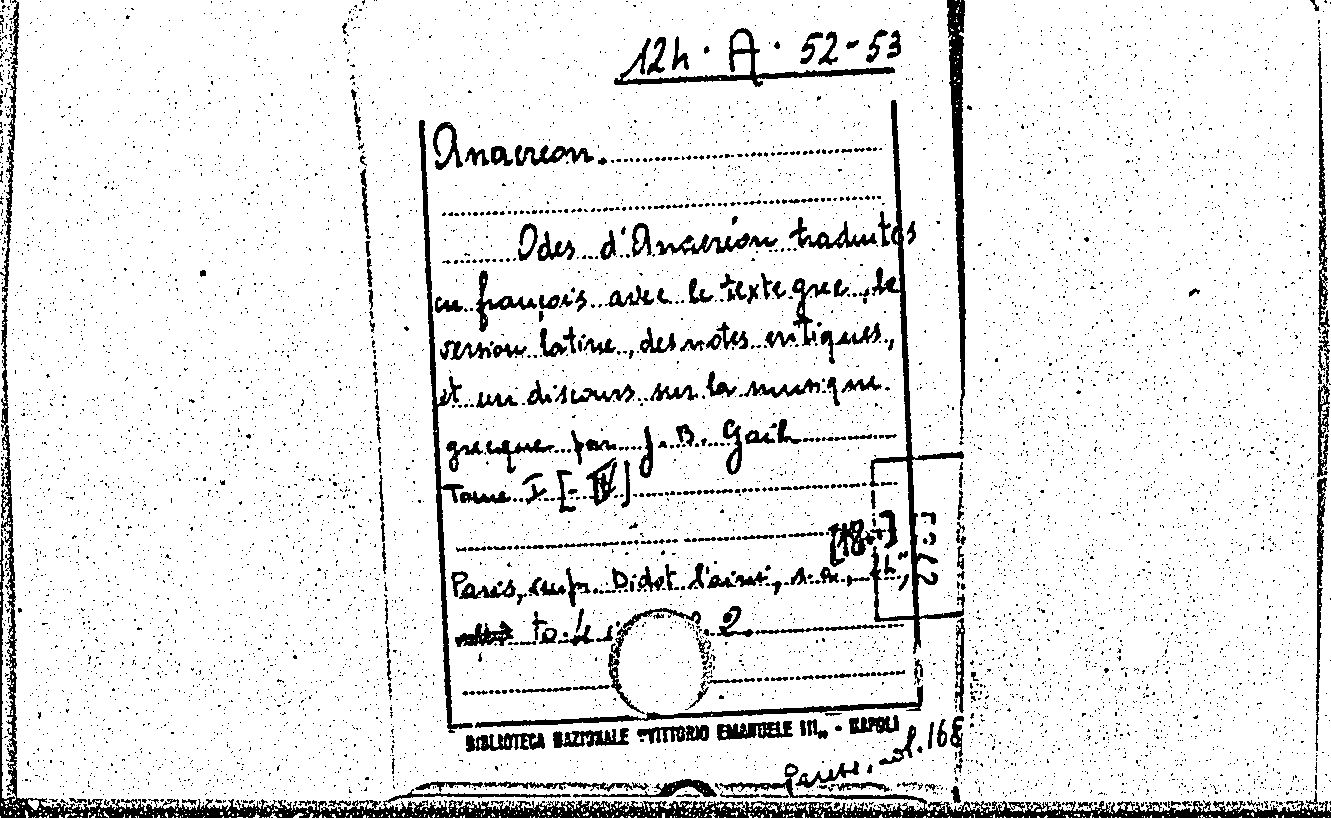 12h · A · 52-53
Anacreon.
Odes d'Anacréon traduites
en françois avec le texte grec, la
version latine, des notes critiques,
et un discours sur la musique
grecque par J. B. Gail
Tome I [- IV]
Paris, Didot l'ainé, s. a.,
to. 4 2.
BIBLIOTECA NAZIONALE "VITTORIO EMANUELE III" - NAPOLI
vol. 168